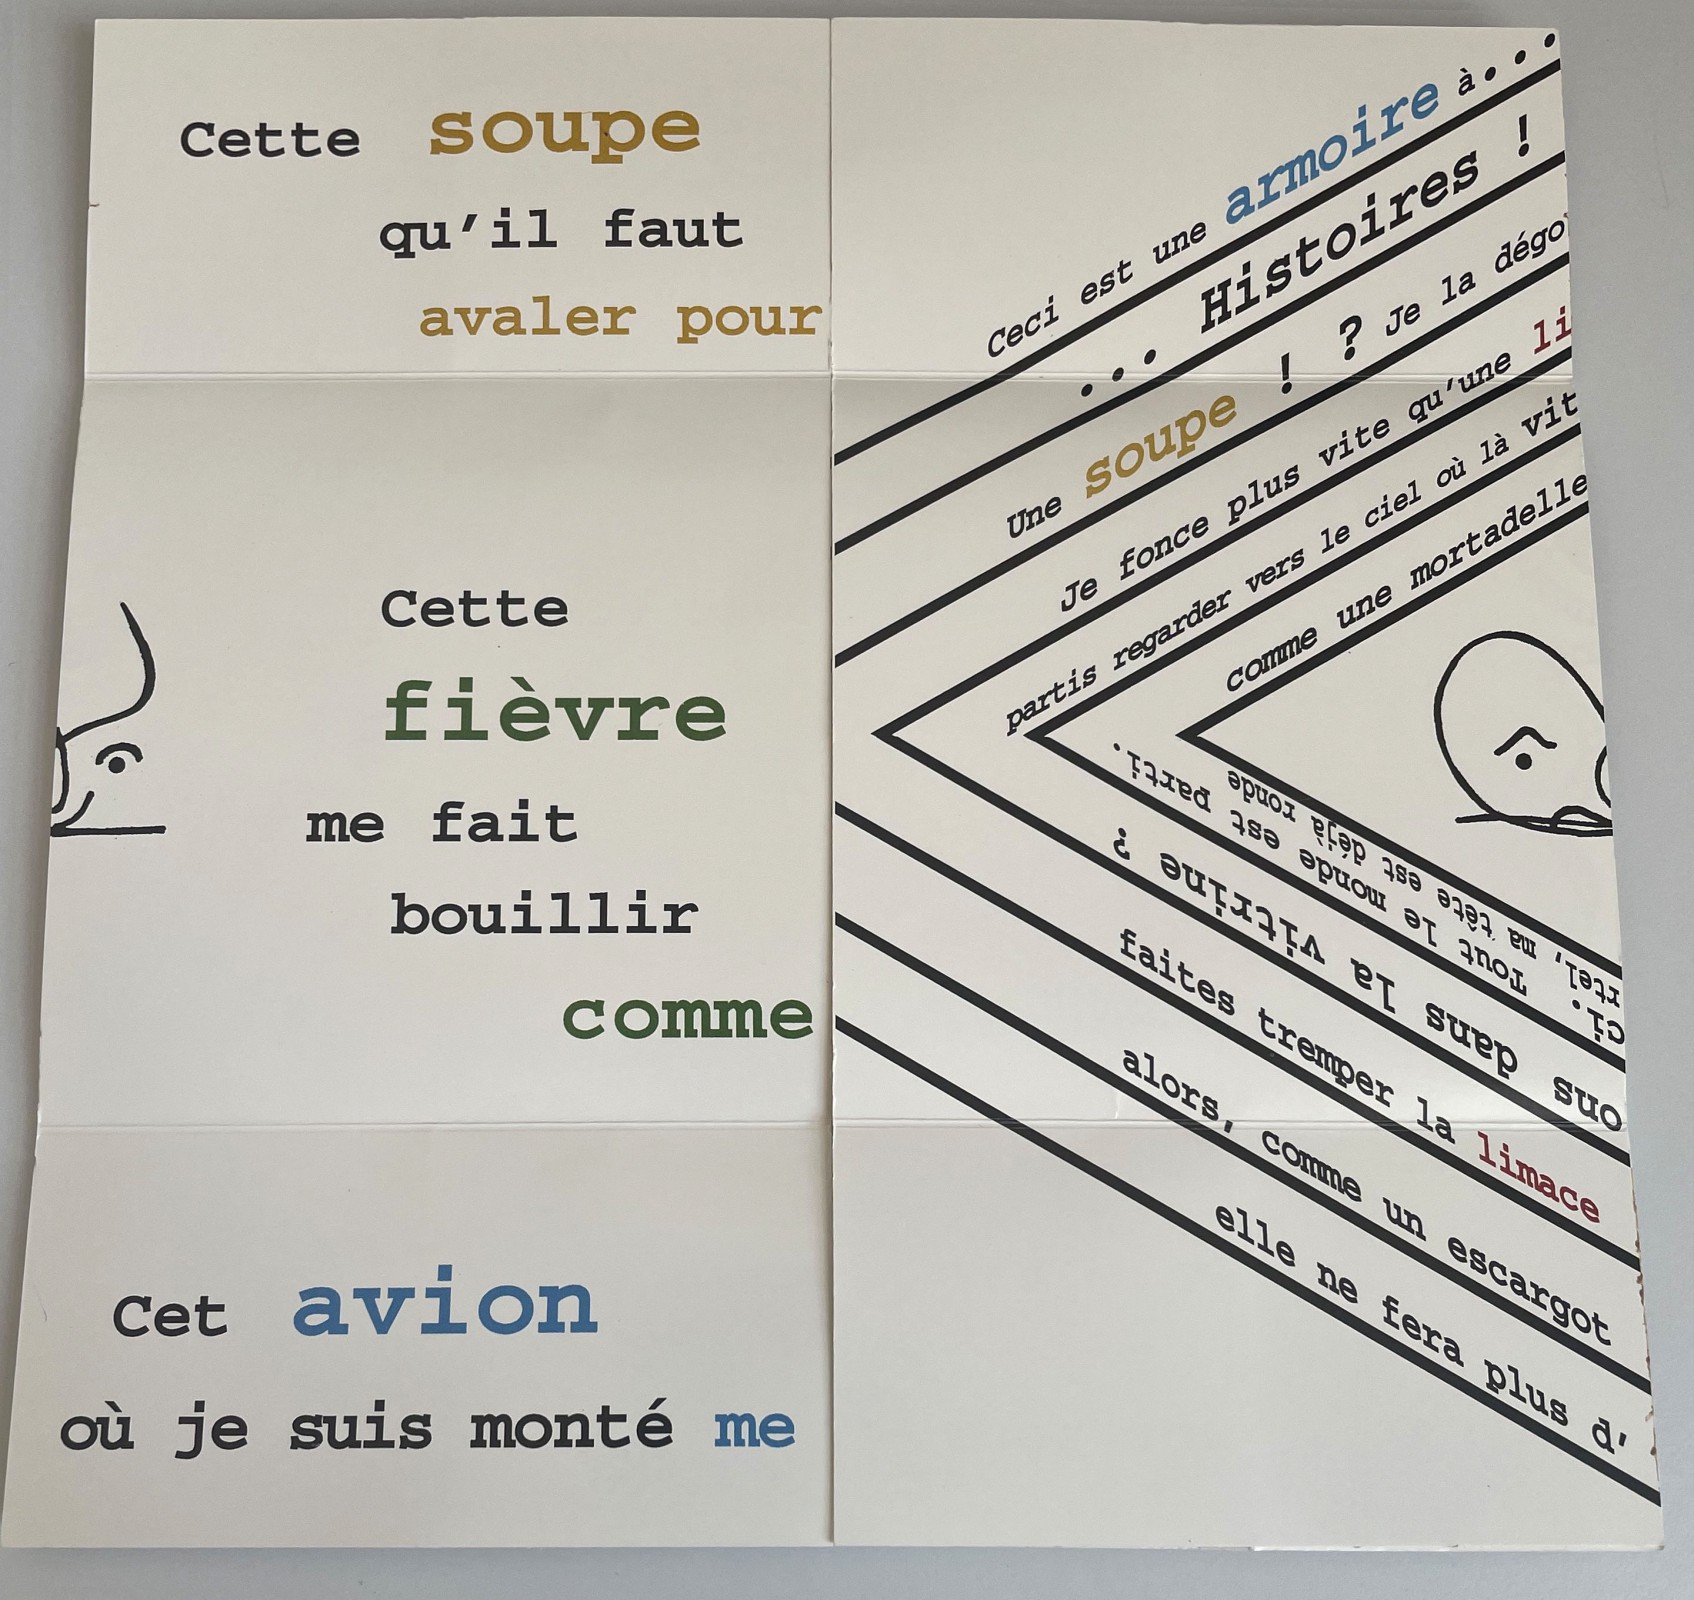 Cette soupe
qu'il faut
avaler pour
Cette
fièvre
me fait
bouillir
comme
Cet avion
où je suis monté me
Ceci est une armoire à...
... Histoires !
Une soupe ! ? Je la dégo
Je fonce plus vite qu'une li
partis regarder vers le ciel où là vit
comme une mortadelle
rtel, ma tête est déjà ronde
ci. Tout le monde est parti.
ons dans la vitrine ?
faites tremper la limace
alors, comme un escargot
elle ne fera plus d'